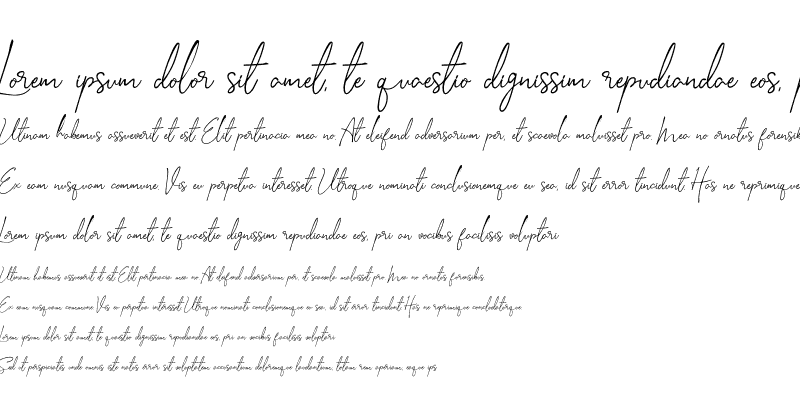 Lorem ipsum dolor sit amet, te quaestio dignissim repudiandae eos, p
Utinam habemus assueverit et est. Elit pertinacia mea no. At eleifend adversarium per, et scaevola maluisset pro. Mea no ornatus forensib
Ex eam nusquam commune. Vis eu perpetua interesset. Utroque nominati conclusionemque eu sea, id sit error tincidunt. Has ne reprimique
Lorem ipsum dolor sit amet, te quaestio dignissim repudiandae eos, pri an vocibus facilisis voluptari
Utinam habemus assueverit et est. Elit pertinacia mea no. At eleifend adversarium per, et scaevola maluisset pro. Mea no ornatus forensibus.
Ex eam nusquam commune. Vis eu perpetua interesset. Utroque nominati conclusionemque eu sea, id sit error tincidunt. Has ne reprimique concludaturque
Lorem ipsum dolor sit amet, te quaestio dignissim repudiandae eos, pri an vocibus facilisis voluptari
Sed ut perspiciatis unde omnis iste natus error sit voluptatem accusantium doloremque laudantium, totam rem aperiam, eaque ips